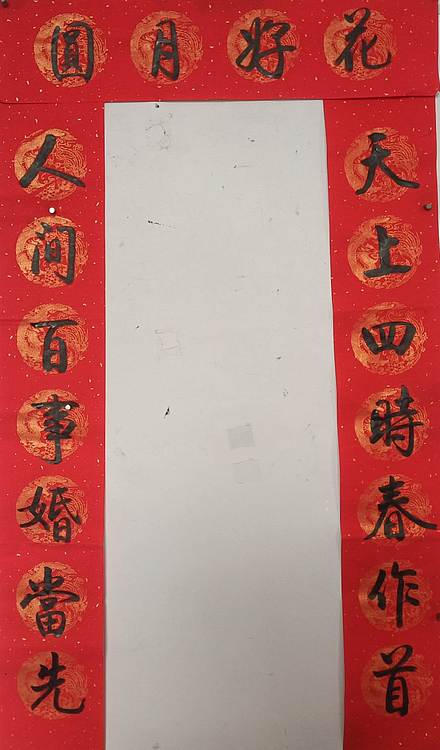 花好月圓
天上四時春作首
人间百事婚當先